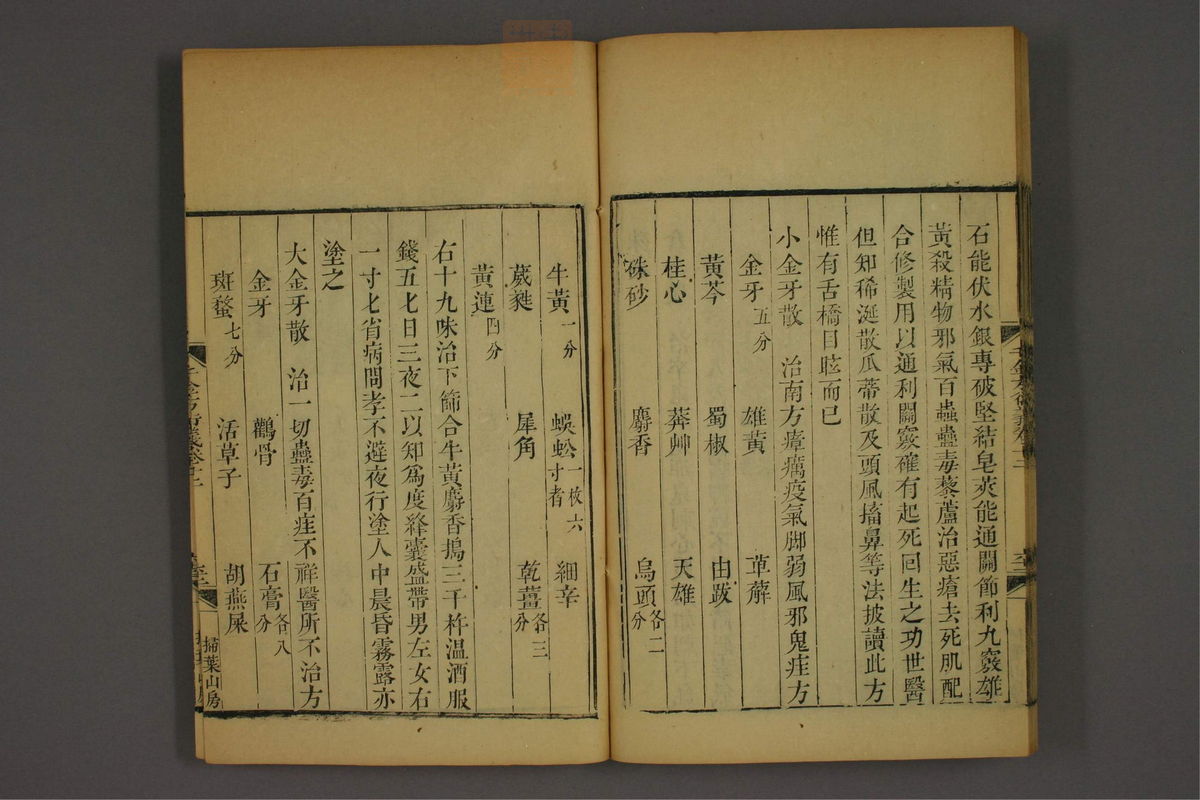 石能伏水銀專破堅結皂莢能通關節利九竅雄
黃殺精物邪氣百蟲蠱毒藜蘆治惡瘡去死肌配
合修製用以通利關竅確有起死回生之功世醫
但知稀涎散瓜蒂散及頭風㗜鼻等法披讀此方
惟有舌橋目眩而已
小金牙散 治南方瘴癘疫氣脚弱風邪鬼疰方
金牙五分 雄黃 萆薢
黃芩 蜀椒 由跋
桂心 莽艸 天雄
硃砂 麝香 烏頭各二分
牛黃一分 蜈蚣一枚六寸者 細辛
葳蕤 犀角 乾薑各三分
黃連四分
右十九味治下篩合牛黃麝香搗三千杵溫酒服
錢五七日三夜二以知爲度絳囊盛帶男左女右
一寸七省病問孝不避夜行塗人中晨昏霧露亦
塗之
大金牙散 治一切蠱毒百疰不祥醫所不治方
金牙 鸛骨 石膏各八分
斑蝥七分 活草子 胡燕屎
掃葉山房